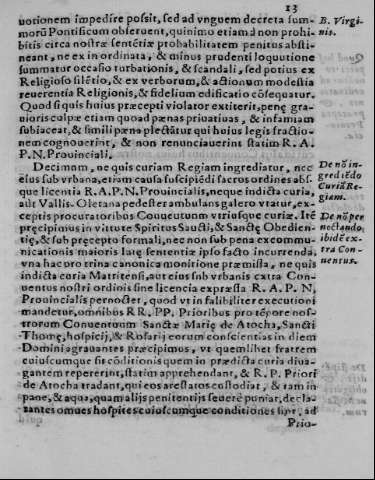 13
uotionem impedire possit, sed ad vnguem decreta sum-
morũ Pontificum obseruent, quinimo etiam à non prohi-
bitis circa nostræ sentẽtiæ probabilitatem penitus absti-
neant, ne ex in ordinata, & minus prudenti loquutione
summatur occasio turbationis, & scandali, sed potius ex
Religioso silẽtio, & ex verborum, & actionum modestia
reuerentia Religionis, & fidelium edificatio cõsequatur.
Quod si quis huius præcepti violator extiterit, penę gra-
uioris culpæ etiam quoad pænas priuatiuas, & infamiam
subiaceat, & simili pæna plectãtur qui huius legis fractio-
nem cognouerint, & non renunciauerint statim R. A.
P. N. Prouinciali.
Decimum, ne quis curiam Regiam ingrediatur, nec
eius sub vrbana, etiam causa suscipiẽdi sacros ordines abs-
que licentia R. A. P. N. Prouincialis, neque indicta curia,
aut Vallis-Oletana pedester ambulans galero vtatur, ex-
ceptis procuratoribus Conuentuum vtriusque curiæ. Itẽ
pręcipimus in virtute Spiritus Sancti, & Sanctę Obedien-
tię, & sub pręcepto formali, nec non sub pena excommu-
nicationis maioris latę sententiæ ipso facto incurrenda,
vna hac pro trina canonica monitione præmissa, ne quis
indicta curia Matritensi, aut eius sub vrbanis extra Con-
uentus nostri ordinis sine licencia expræssa R. A. P. N.
Prouincialis pernocter, quod vt infalibiliter executioni
mandetur, omnibus RR. PP. Prioribus pro tẽpore nos-
trorum Conuentuum Sanctæ Marię de Atocha, Sancti
Thomę, hospicij, & Rosarij eorum conscientias in diem
Domini agrauantes præcipimus, vt quemlibet fratrem
cuiuscumque sit cõditionis quem in prædicta curia diua-
gantem repererint, statim apprehendant, & R. P. Priori
de Atocha tradant, qui eos arestatos custodiat, & tam in
pane, & aqua, quam alijs penitentijs seuerè puniat, decla-
rantes omnes hospites cuiuscumque conditiones sint, ad
Prio-
B. Virgi-
nis.
De nõ in-
grediẽdo
Curiã Re-
giam.
De nõ per
noctando
ibidẽ ex-
tra Con-
uentus.